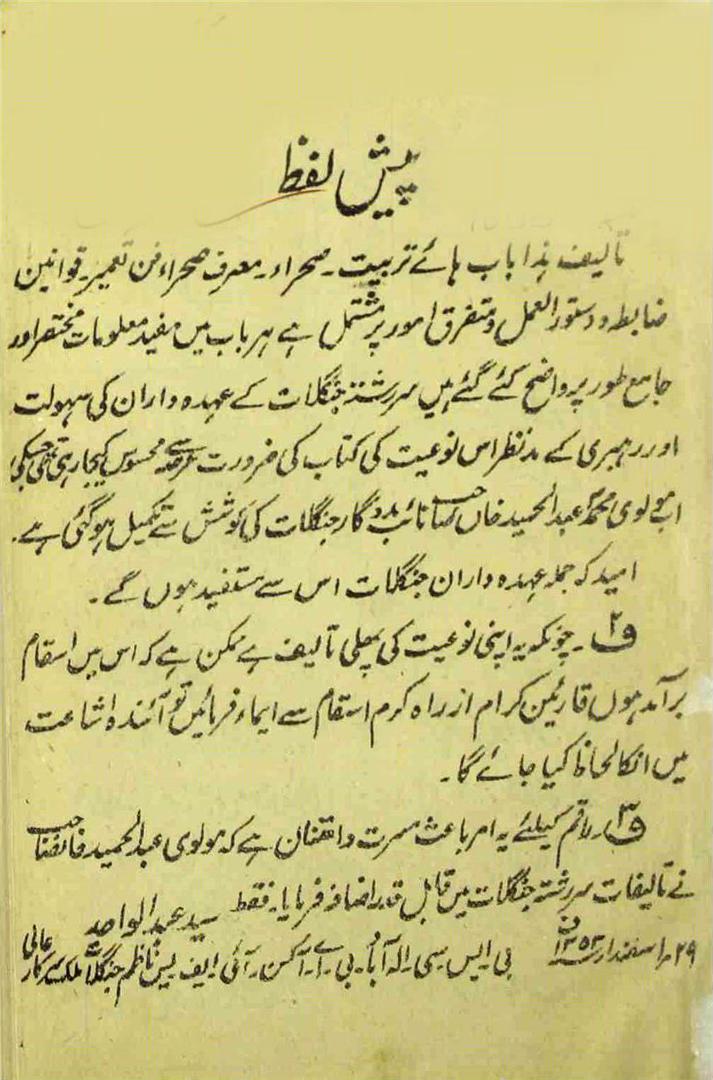 پیش لفظ
تالیف ہذا باب ہائے تربیت۔ صحراء۔ معرف صحراء فن تعمیر۔ قوانین
ضابطہ و دستور العمل و متفرق امور پر مشتمل ہے ہر باب میں مفید معلومات مختصر اور
جامع طور پر واضح کئے گئے ہیں سررشتہ جنگلات کے عہدہ داران کی سہولت
اور رہبری کے مدنظر اس نوعیت کی کتاب کی ضرورت عرصہ سے محسوس کیجا رہی تھی جسکی
اب مولوی محمد عبدالحمید خاں صاحب نائب مددگار جنگلات کی کوشش سے تکمیل ہوگئی ہے۔
امید کہ جملہ عہدہ داران جنگلات اس سے مستفید ہوں گے۔
ف۲۔ چونکہ یہ اپنی نوعیت کی پہلی تالیف ہے ممکن ہے کہ اس میں اسقام
برآمد ہوں قارئین کرام از راہ کرم اسقام سے ایماء فرمائیں تو آئندہ اشاعت
میں انکا لحاظ کیا جائے گا۔
ف۳۔ راقم کیلئے یہ امر باعث مسرت و امتنان ہے کہ مولوی عبدالحمید خانصاحب
نے تالیفات سررشتہ جنگلات میں قابل قدر اضافہ فرمایا۔ فقط سید عبدالواحد
۲۹ اسفندار ۱۳۵۳ف بی۔ ایس۔ سی۔ الہ آباد۔ بی۔ اے۔ آکسن۔ آئی۔ ایف۔ یس ناظم جنگلات ملک سرکار عالی